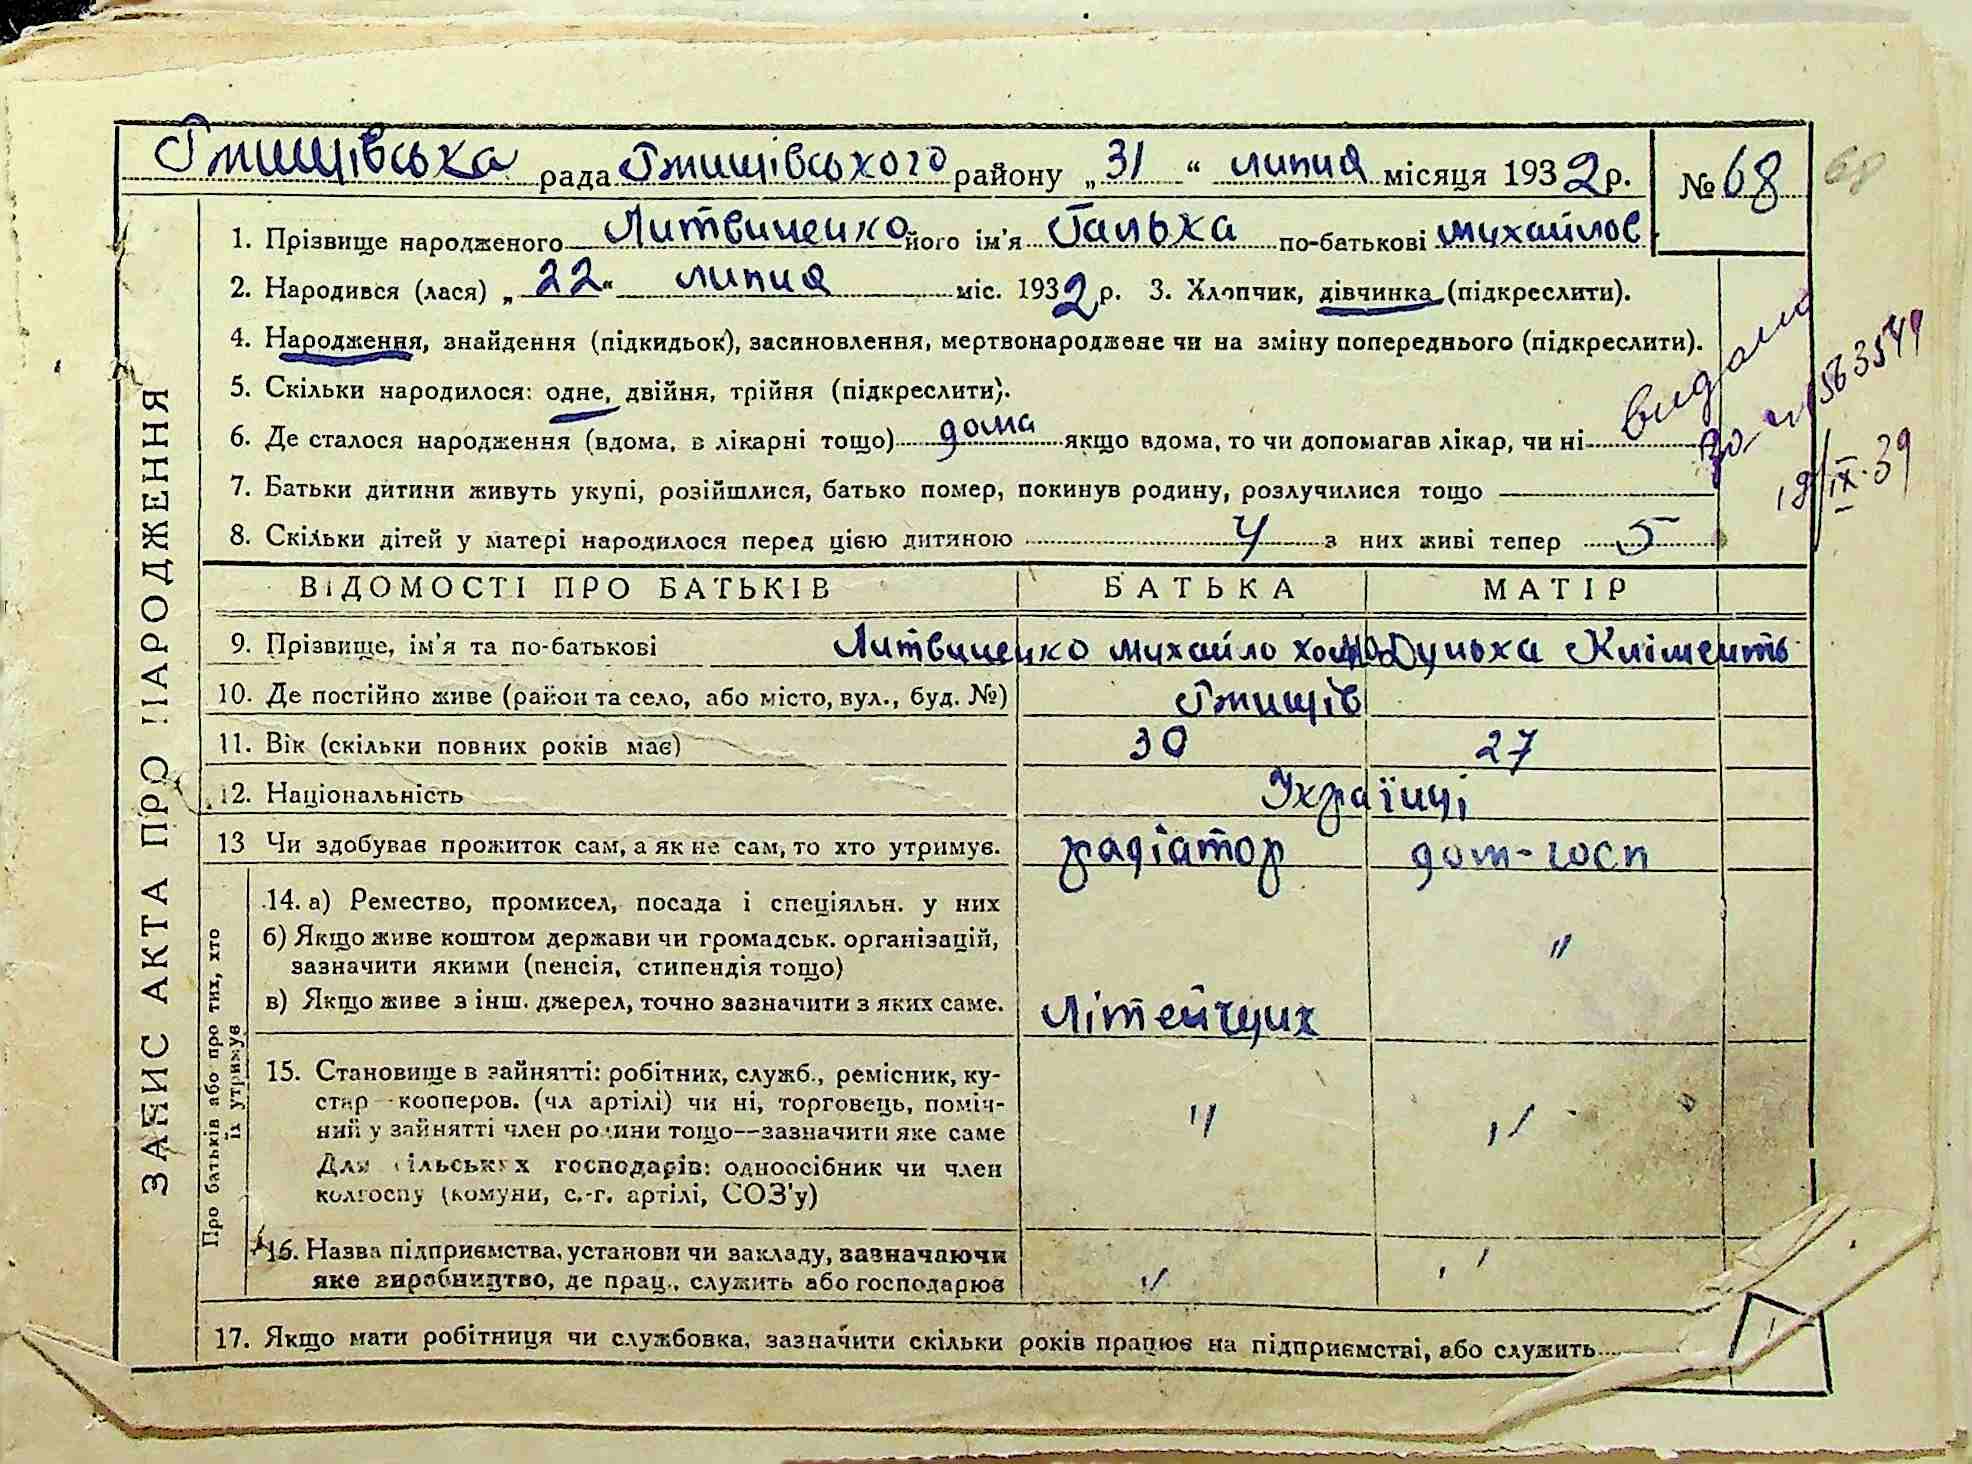 Ржищівська рада Ржищівського району „31“ липня місяця 1932 р. № 68
68
1. Прізвище народженого Литвиненко його ім'я Галька по-батькові михайлов
2. Народився (лася) „22“ липня міс. 1932 р. 3. Хлопчик, дівчинка (підкреслити).
4. Народження, знайдення (підкидьок), засиновлення, мертвонароджене чи на зміну попереднього (підкреслити).
5. Скільки народилося: одне, двійня, трійня (підкреслити).
6. Де сталося народження (вдома, в лікарні тощо) дома якщо вдома, то чи допомагав лікар, чи ні
видано
за № 563549
19/IX.39
7. Батьки дитини живуть укупі, розійшлися, батько помер, покинув родину, розлучилися тощо
8. Скільки дітей у матері народилося перед цією дитиною 4 з них живі тепер 5
ВІДОМОСТІ ПРО БАТЬКІВ БАТЬКА МАТІР
9. Прізвище, ім'я та по-батькові Литвиненко михайло Дунька Кліменть
10. Де постійно живе (район та село, або місто, вул., буд. №) Ржищів
11. Вік (скільки повних років має) 30 27
12. Національність Українці
13 Чи здобував прожиток сам, а як не сам, то хто утримує. радіатор дом-госп
14. а) Ремество, промисел, посада і спеціяльн. у них
б) Якщо живе коштом держави чи громадськ. організацій, "
зазначити якими (пенсія, стипендія тощо)
в) Якщо живе з інш. джерел, точно зазначити з яких саме. Літейщик
15. Становище в зайнятті: робітник, служб., ремісник, ку-
стар кооперов. (чл артілі) чи ні, торговець, поміч- " "
ний у зайнятті член родини тощо—зазначити яке саме
Для сільських господарів: одноосібник чи член
колгоспу (комуни, с.-г. артілі, СОЗ'у)
16. Назва підприємства, установи чи закладу, зазначаючи " "
яке виробництво, де прац., служить або господарює
17. Якщо мати робітниця чи службовка, зазначити скільки років працює на підприємстві, або служить
ЗАПИС АКТА ПРО НАРОДЖЕННЯ
Про батьків або про тих, хто
їх утримує